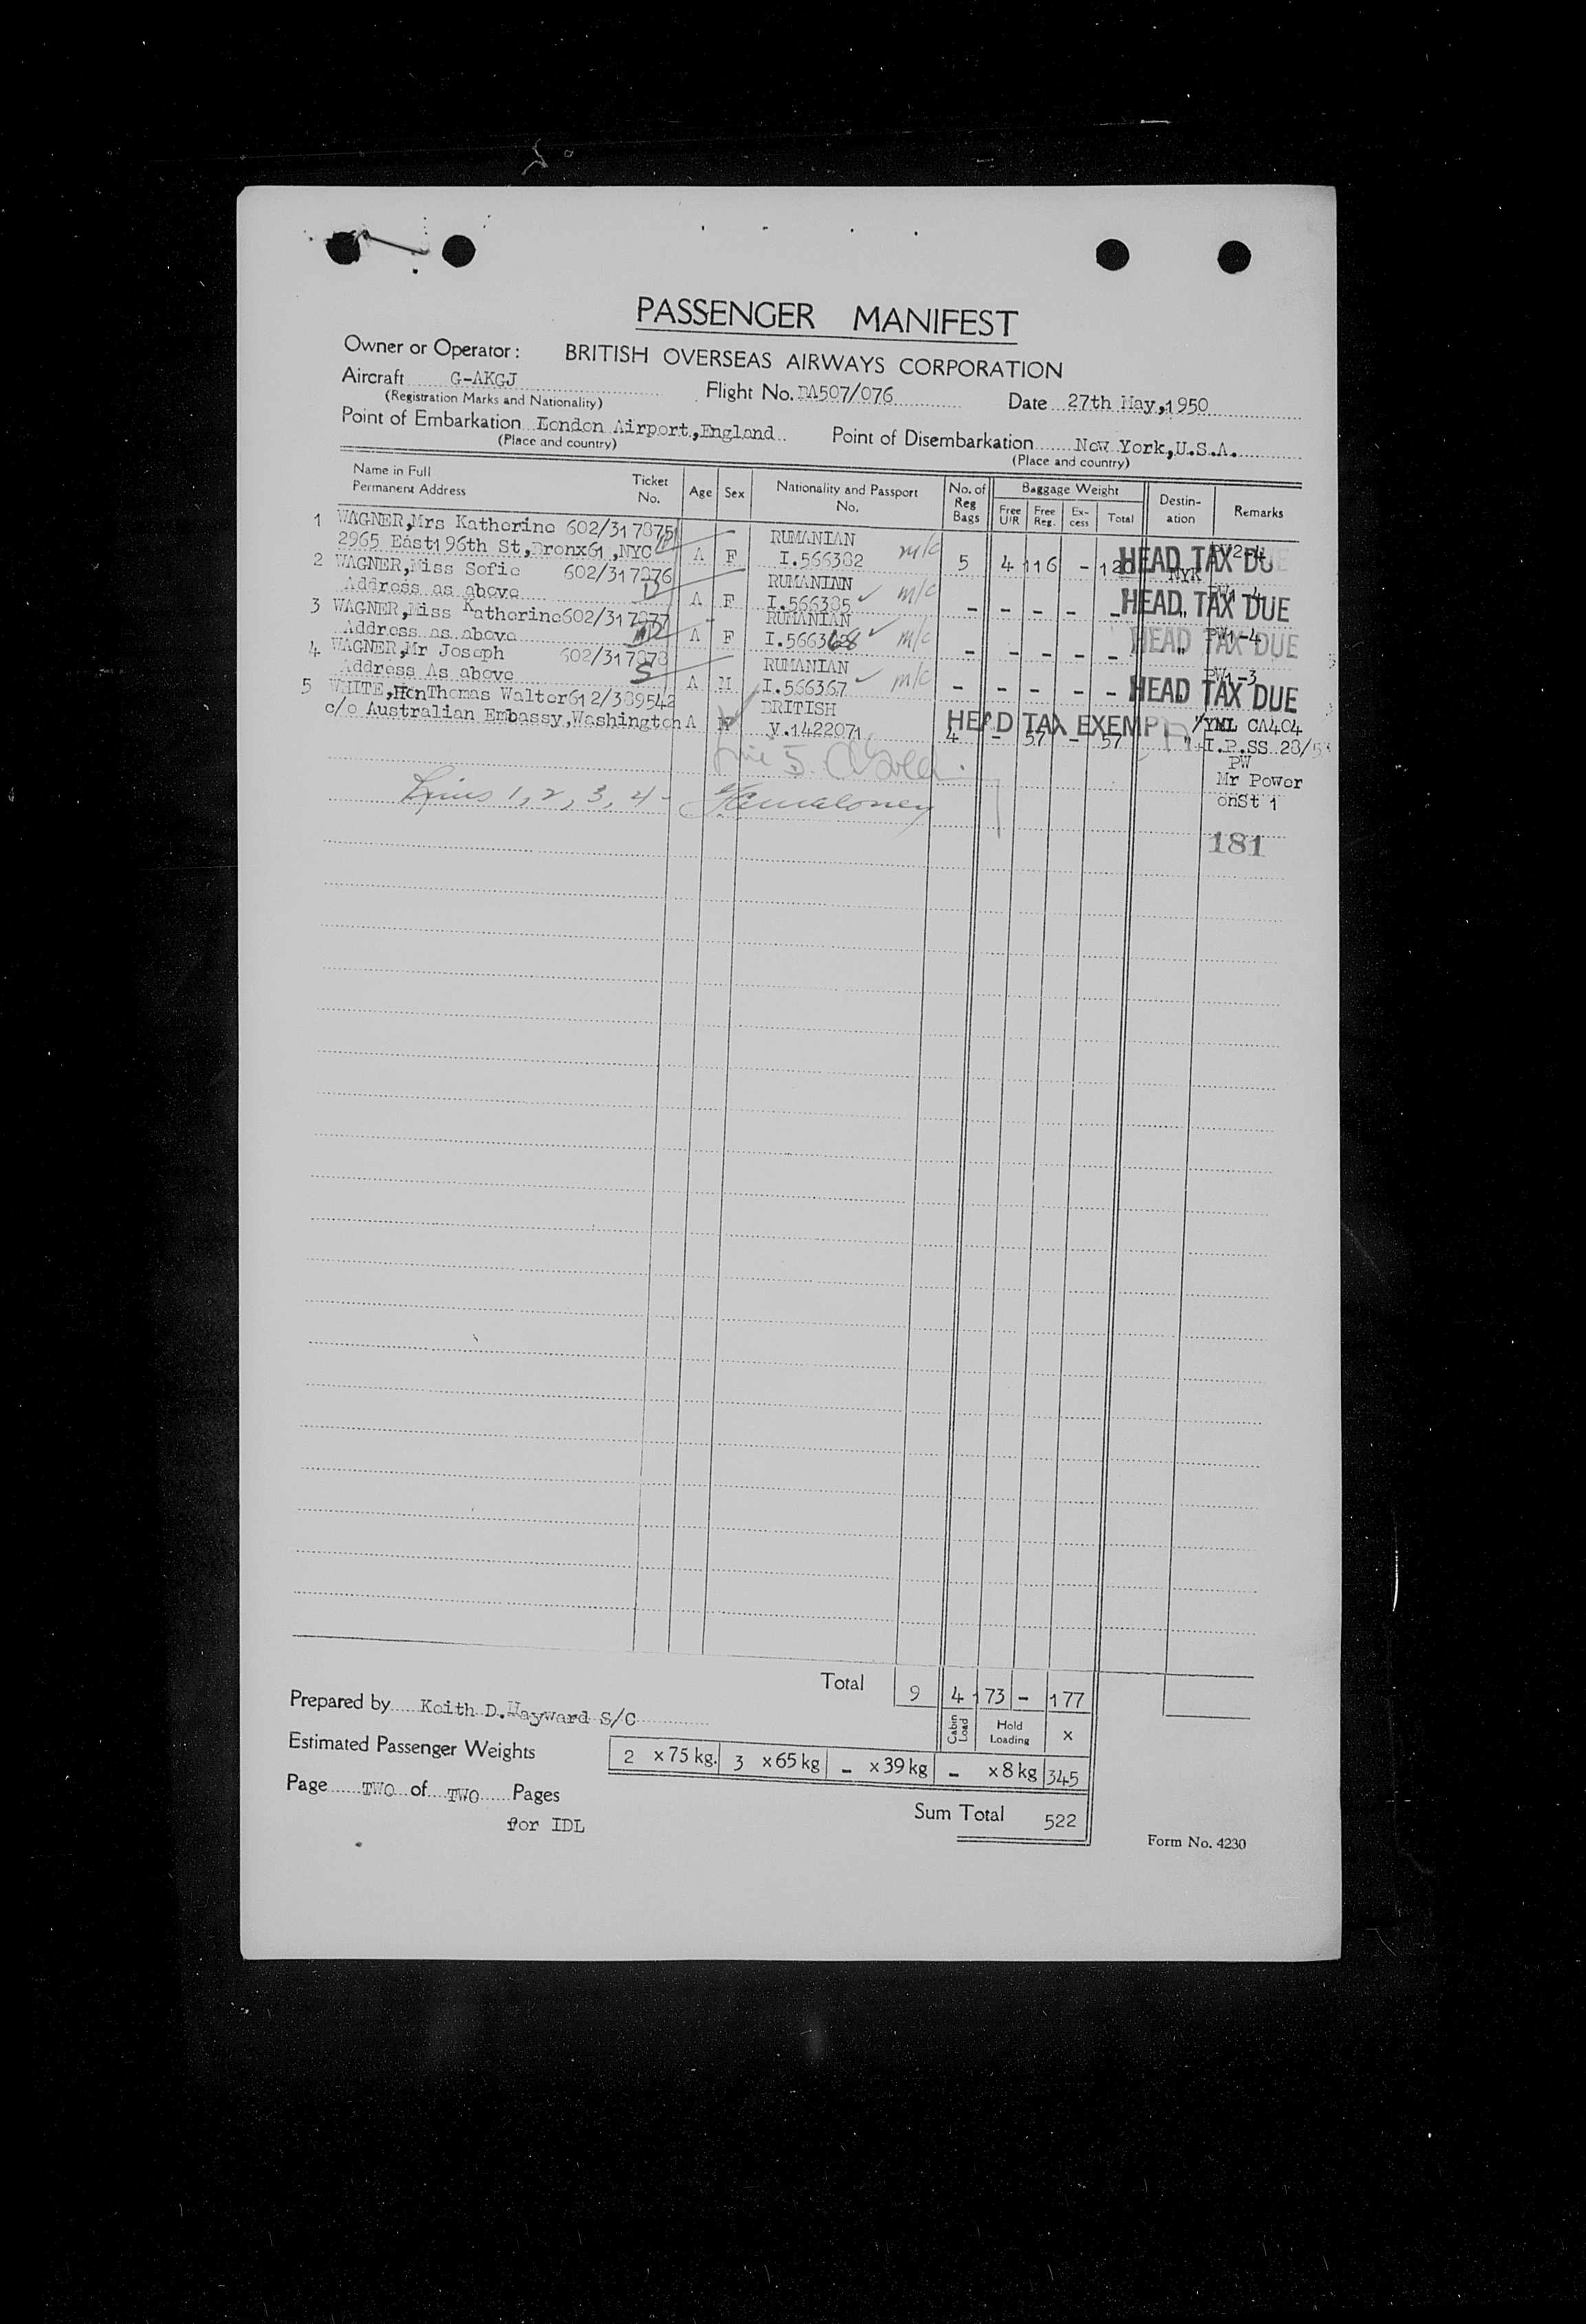 PASSENGER MANIFEST
Owner or Operator: BRITISH OVERSEAS AIRWAYS CORPORATION
Aircraft G-AKGJ Flight No. BA507/076 Date 27th May,1950
(Registration Marks and Nationality)
Point of Embarkation London Airport,England Point of Disembarkation New York,U.S.A.
(Place and country) (Place and country)
Name in Full Permanent Address Ticket No. Age Sex Nationality and Passport No. No. of Reg Bags Baggage Weight Destin-ation Remarks
Free U/R Free Reg. Ex-cess Total
1 WAGNER,Mrs Katherine 602/317875 RUMANIAN
2965 East196th St,Bronx61,NYC A F I.566382 m/c 5 4 116 - 120 NYK HEAD TAX DUE
2 WAGNER,Miss Sofie 602/317876 RUMANIAN
Address as above A F I.566385 m/c - - - - - " HEAD TAX DUE
3 WAGNER,Miss Katherine602/317877 RUMANIAN PW1-4
Address as above A F I.566368 m/c - - - - - " HEAD TAX DUE
4 WAGNER,Mr Joseph 602/317878 RUMANIAN PW1-3
Address As above S A M I.566367 m/c - - - - - " HEAD TAX DUE
5 WHITE,HonThomas Walter612/389542 BRITISH
c/o Australian Embassy,Washington A V.1422071 4 - 57 - 57 " HEAD TAX EXEMPT YML CA404
I.P.SS 28/5
PW
Line 5. Mr Power
Lines 1, 2, 3, 4 - onSt 1
181
Total 9 4 173 - 177
Prepared by Keith D.Hayward S/C
Cabin Load Hold Loading x
Estimated Passenger Weights 2 x 75 kg. 3 x 65 kg - x 39 kg - x 8 kg 345
Page TWO of TWO Pages
Sum Total 522
for IDL
Form No. 4230